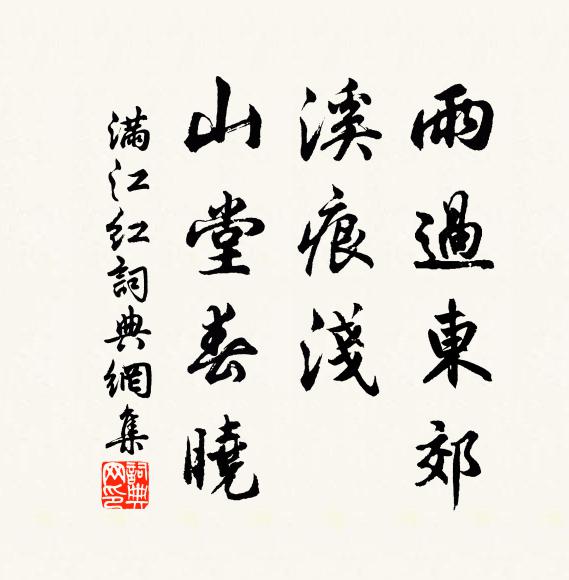 雨過東郊
溪痕淺
山堂春曉
滿江紅詞典網集
詞典網印